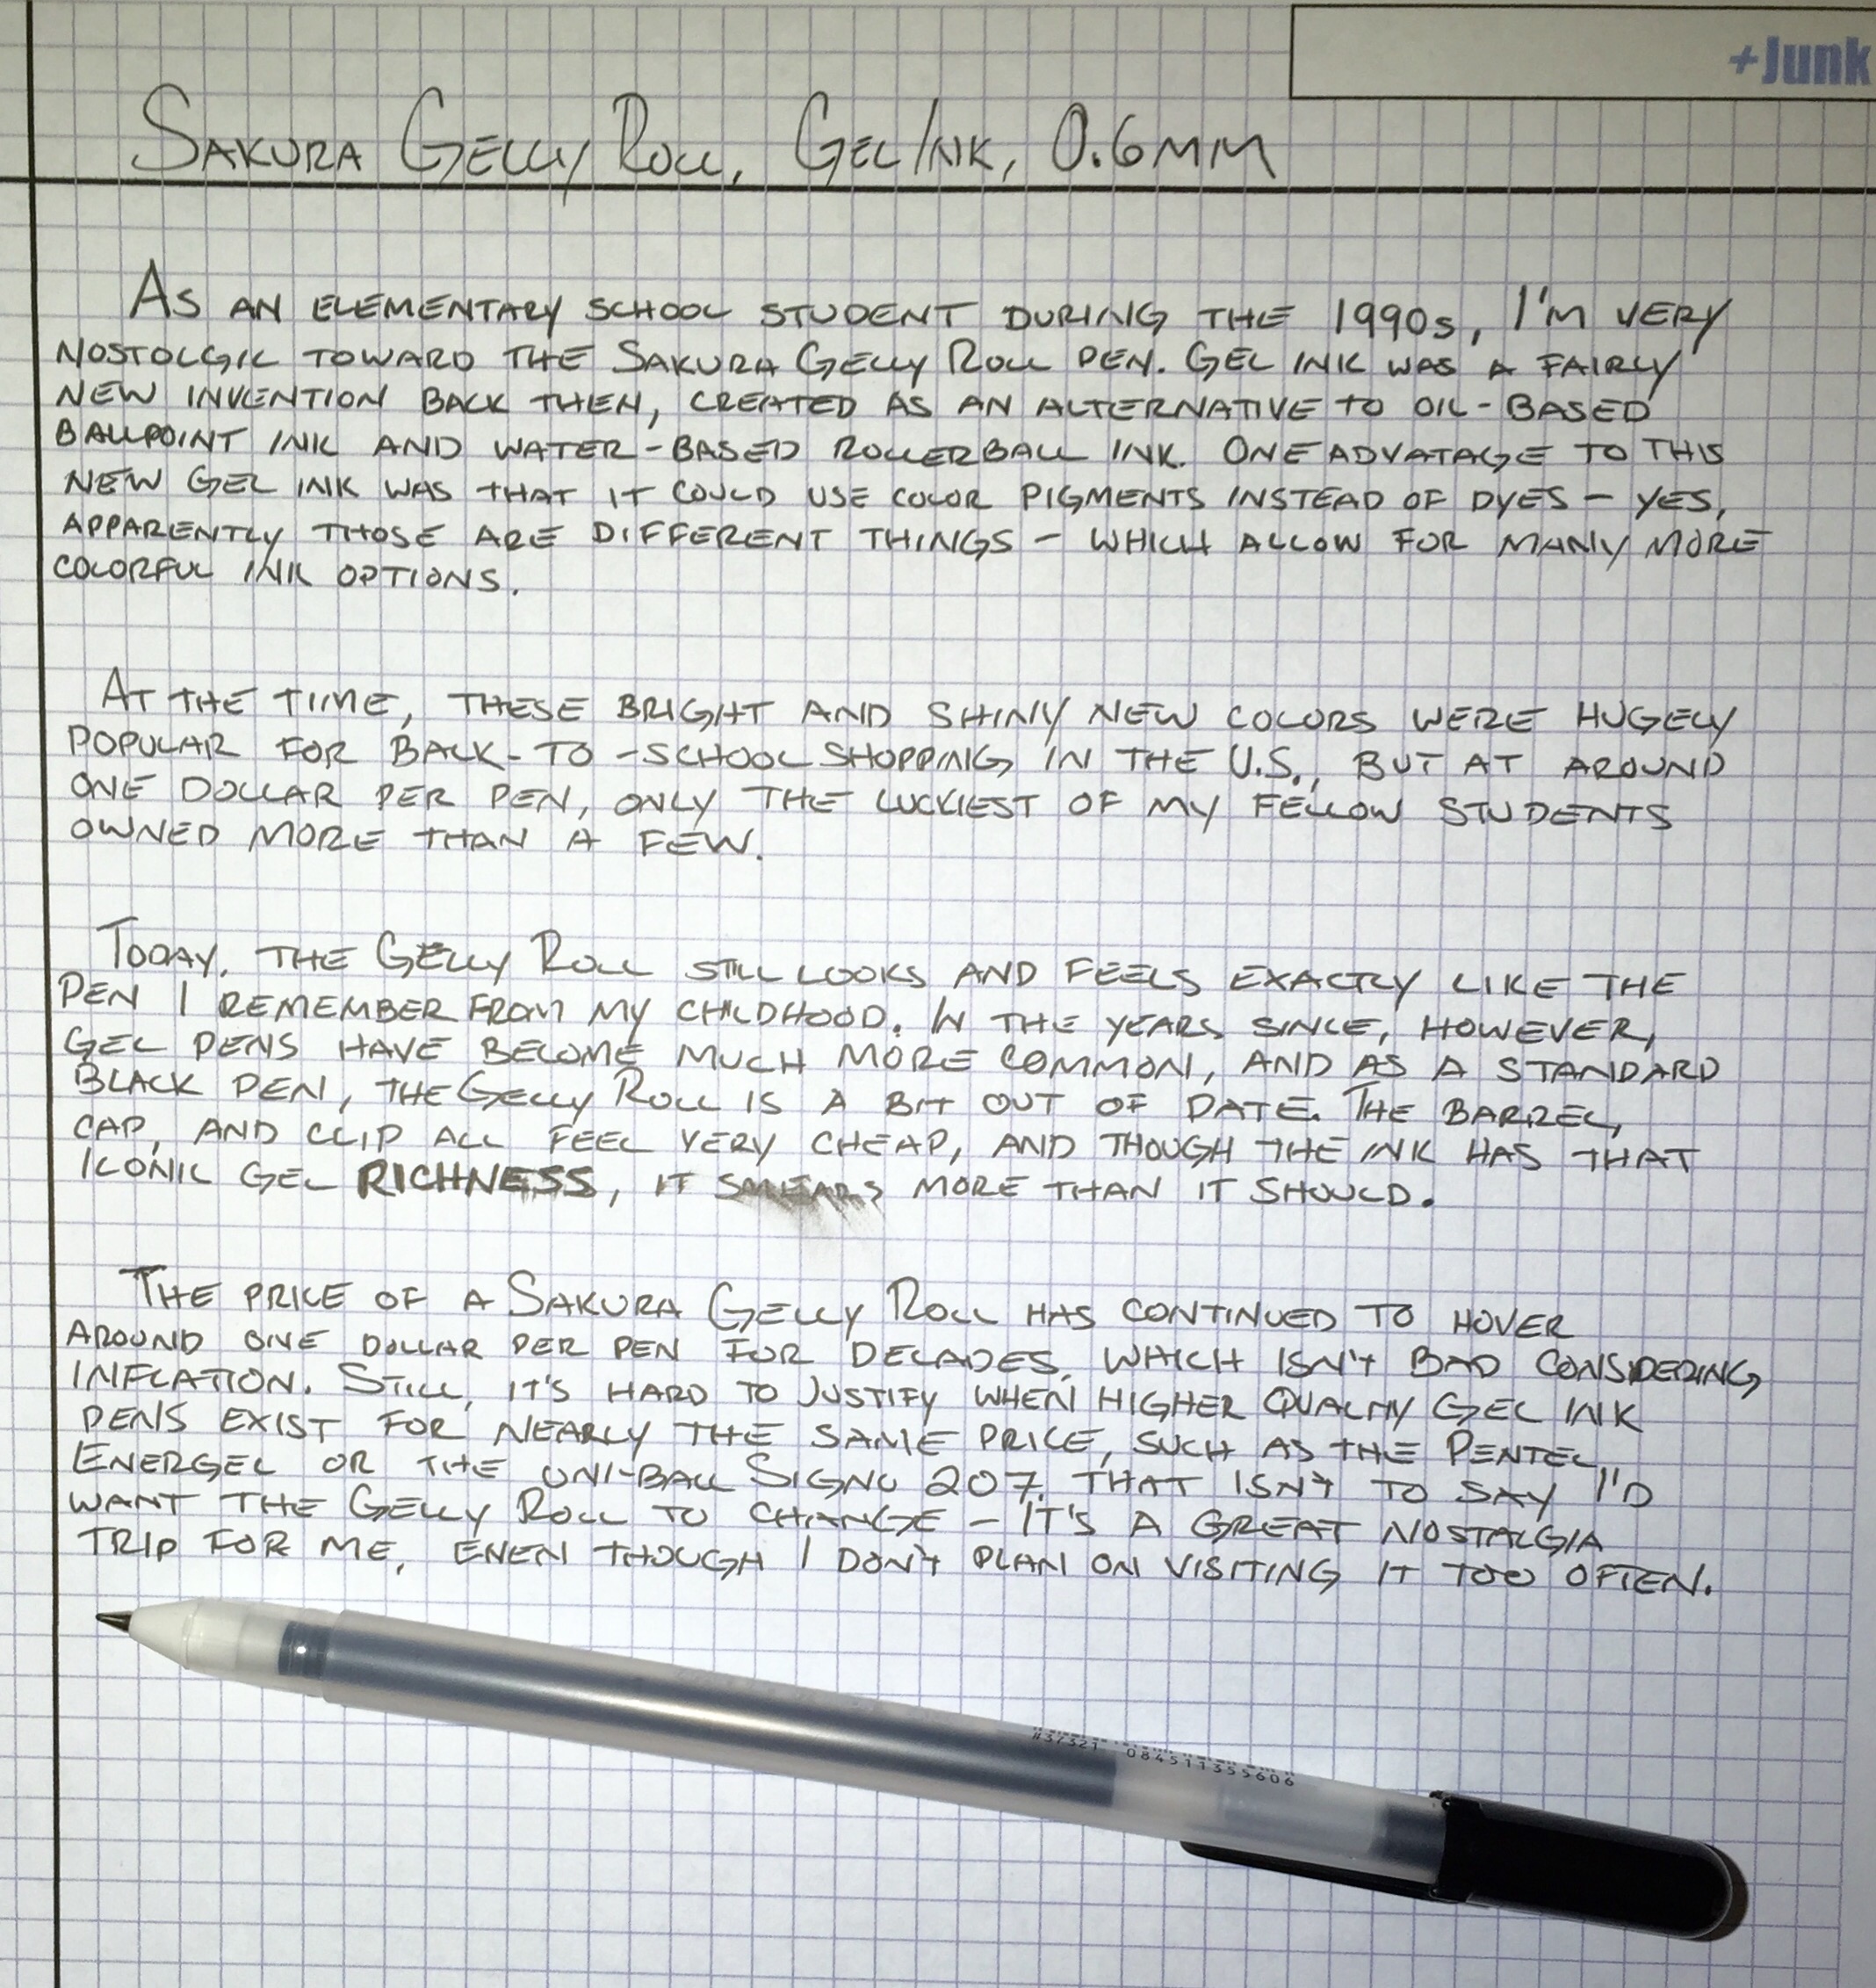 +Junk
SAKURA GELLY ROLL, GEL INK, 0.6MM
AS AN ELEMENTARY SCHOOL STUDENT DURING THE 1990s, I'M VERY
NOSTOLGIC TOWARD THE SAKURA GELLY ROLL PEN. GEL INK WAS A FAIRLY
NEW INVENTION BACK THEN, CREATED AS AN ALTERNATIVE TO OIL-BASED
BALLPOINT INK AND WATER-BASED ROLLERBALL INK. ONE ADVATAGE TO THIS
NEW GEL INK WAS THAT IT COULD USE COLOR PIGMENTS INSTEAD OF DYES - YES,
APPARENTLY THOSE ARE DIFFERENT THINGS - WHICH ALLOW FOR MANY MORE
COLORFUL INK OPTIONS.
AT THE TIME, THESE BRIGHT AND SHINY NEW COLORS WERE HUGELY
POPULAR FOR BACK-TO-SCHOOL SHOPPING IN THE U.S., BUT AT AROUND
ONE DOLLAR PER PEN, ONLY THE LUCKIEST OF MY FELLOW STUDENTS
OWNED MORE THAN A FEW.
TODAY, THE GELLY ROLL STILL LOOKS AND FEELS EXACTLY LIKE THE
PEN I REMEMBER FROM MY CHILDHOOD. IN THE YEARS SINCE, HOWEVER,
GEL PENS HAVE BECOME MUCH MORE COMMON, AND AS A STANDARD
BLACK PEN, THE GELLY ROLL IS A BIT OUT OF DATE. THE BARREL,
CAP, AND CLIP ALL FEEL VERY CHEAP, AND THOUGH THE INK HAS THAT
ICONIC GEL RICHNESS, IT SMEARS MORE THAN IT SHOULD.
THE PRICE OF A SAKURA GELLY ROLL HAS CONTINUED TO HOVER
AROUND ONE DOLLAR PER PEN FOR DECADES, WHICH ISN'T BAD CONSIDERING
INFLATION. STILL, IT'S HARD TO JUSTIFY WHEN HIGHER QUALITY GEL INK
PENS EXIST FOR NEARLY THE SAME PRICE, SUCH AS THE PENTEL
ENERGEL OR THE UNI-BALL SIGNO 207. THAT ISN'T TO SAY I'D
WANT THE GELLY ROLL TO CHANGE - IT'S A GREAT NOSTALGIA
TRIP FOR ME, EVEN THOUGH I DON'T PLAN ON VISITING IT TOO OFTEN.
#37321 084511355606